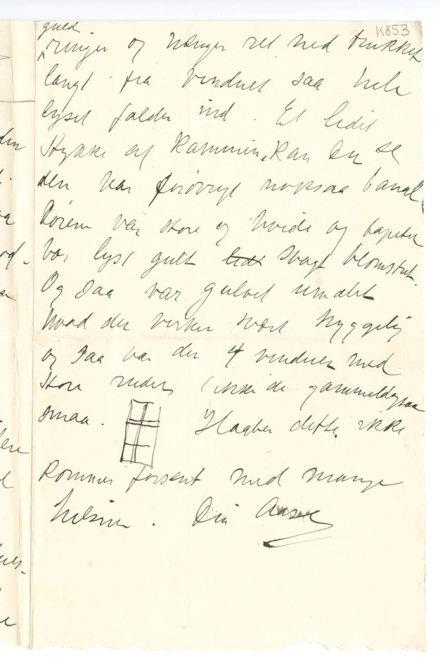 K853
guld
ringer og hænger ret ned trukket
langt fra vinduet saa hele
lyset falder ind. Et lidet
stykke af Kaminen kan Du se
den var forøvrigt noksaa banal
Dørene var store og hvide og tapetet
var lyst gult svagt blomstret.
Og saa var gulvet umalet
hvad der virker svært hyggelig
og saa var der 4 vinduer med
store ruder, ikke de gammeldagse
smaa. Haaber dette ikke
kommer forsent med mange
hilsner. Din